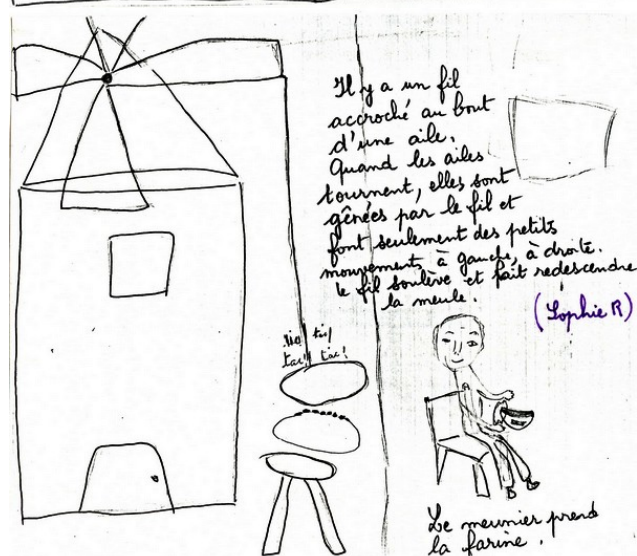 Il y a un fil
accroché au bout
d'une aile.
Quand les ailes
tournent, elles sont
gênées par le fil et
font seulement des petits
mouvements, à gauche, à droite.
le fil soulève et fait redescendre
la meule.
(Sophie R)
tic!
tac! tac!
Le meunier prend
la farine.